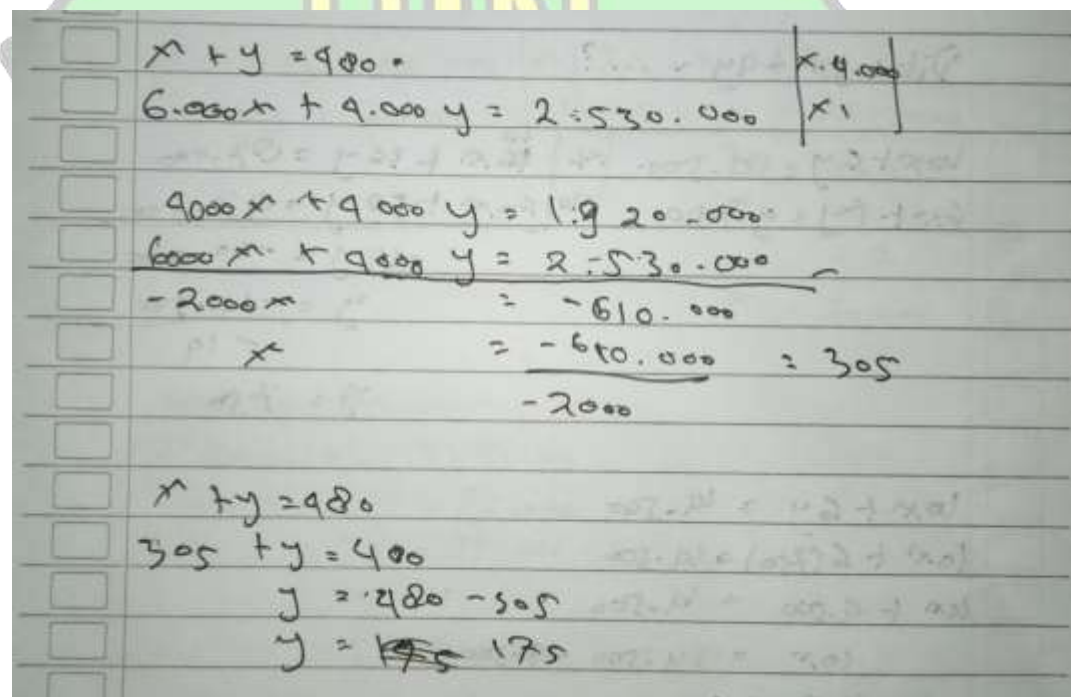 x + y = 480. | x.4.000 |
6.000x + 4.000 y = 2.530.000 | x1 |
4000 x + 4000 y = 1.920.000
6000 x + 4000 y = 2.530.000 -
-2000 x = -610.000
x = -610.000 = 305
-2000
x + y = 480
305 + y = 480
y = 480 - 305
y = 175